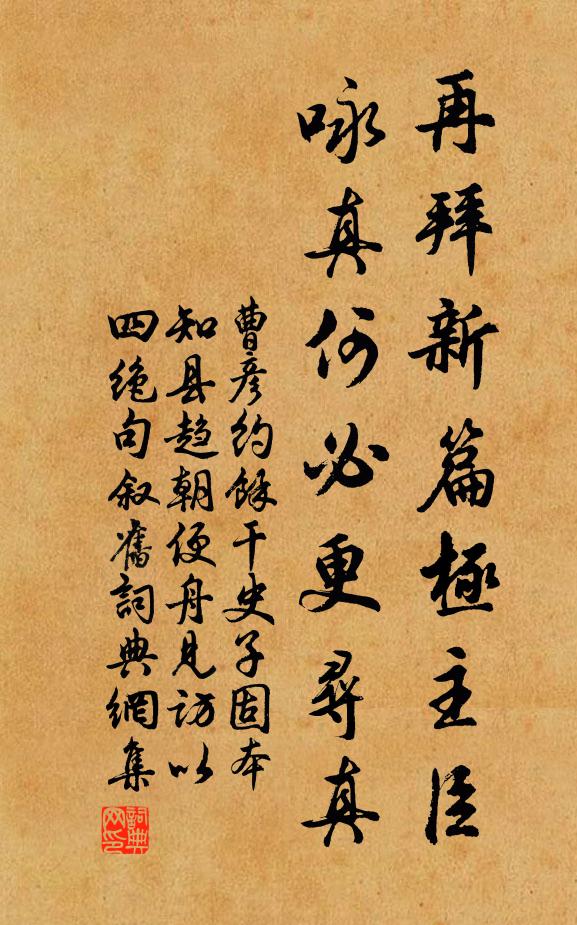 再拜新篇極主臣
咏真何必更尋真
曹彦約餘干史子固本
知县趋朝便舟見訪以
四绝句叙舊詞典網集
詞典网印